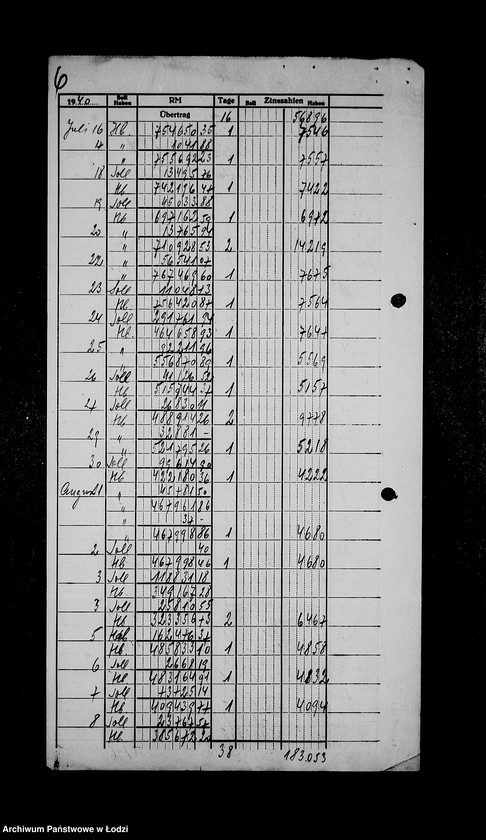 6
1940 Soll Haben RM Tage Soll Zinszahlen Haben
Übertrag 16 56896
Juli 16 Hb. 754650 35 1 7546
17 " 1041 88
" 755692 23 1 7557
18 Soll 13495 76
Hb 742196 47 1 7422
19 Soll 45033 88
Hb 697162 59 1 6972
20 " 13765 94
" 710928 53 2 14219
22 " 56541 07
" 767469 60 1 7675
23 Soll 11048 73
Hb. 756420 87 1 7564
24 Soll 291761 94
Hb. 464658 93 1 7647
25 "
" 556870 89 1 5569
26 Soll 41126 52
Hb 515744 37 1 5157
27 Soll 26830 11
Hb 488914 26 2 9778
29 " 32881 -
" 521795 26 1 5218
30 Soll 99614 90
Hb 422180 36 1 4222
August 1 " 45781 50
" 467961 86
" 37 -
" 467998 86 1 4680
2 Soll 40
Hb. 467998 46 1 4680
3 Soll 118831 18
Hb. 349167 28
3 Soll 25810 55
Hb 323356 73 2 6467
5 162476 37
Hb. 485833 10 1 4858
6 Soll 2668 19
Hb 483164 91 1 4832
7 Soll 73725 14
Hb 409439 77 1 4094
8 Soll 23767 57
Hb. 385672 20
38 183.053
Archiwum Państwowe w Łodzi